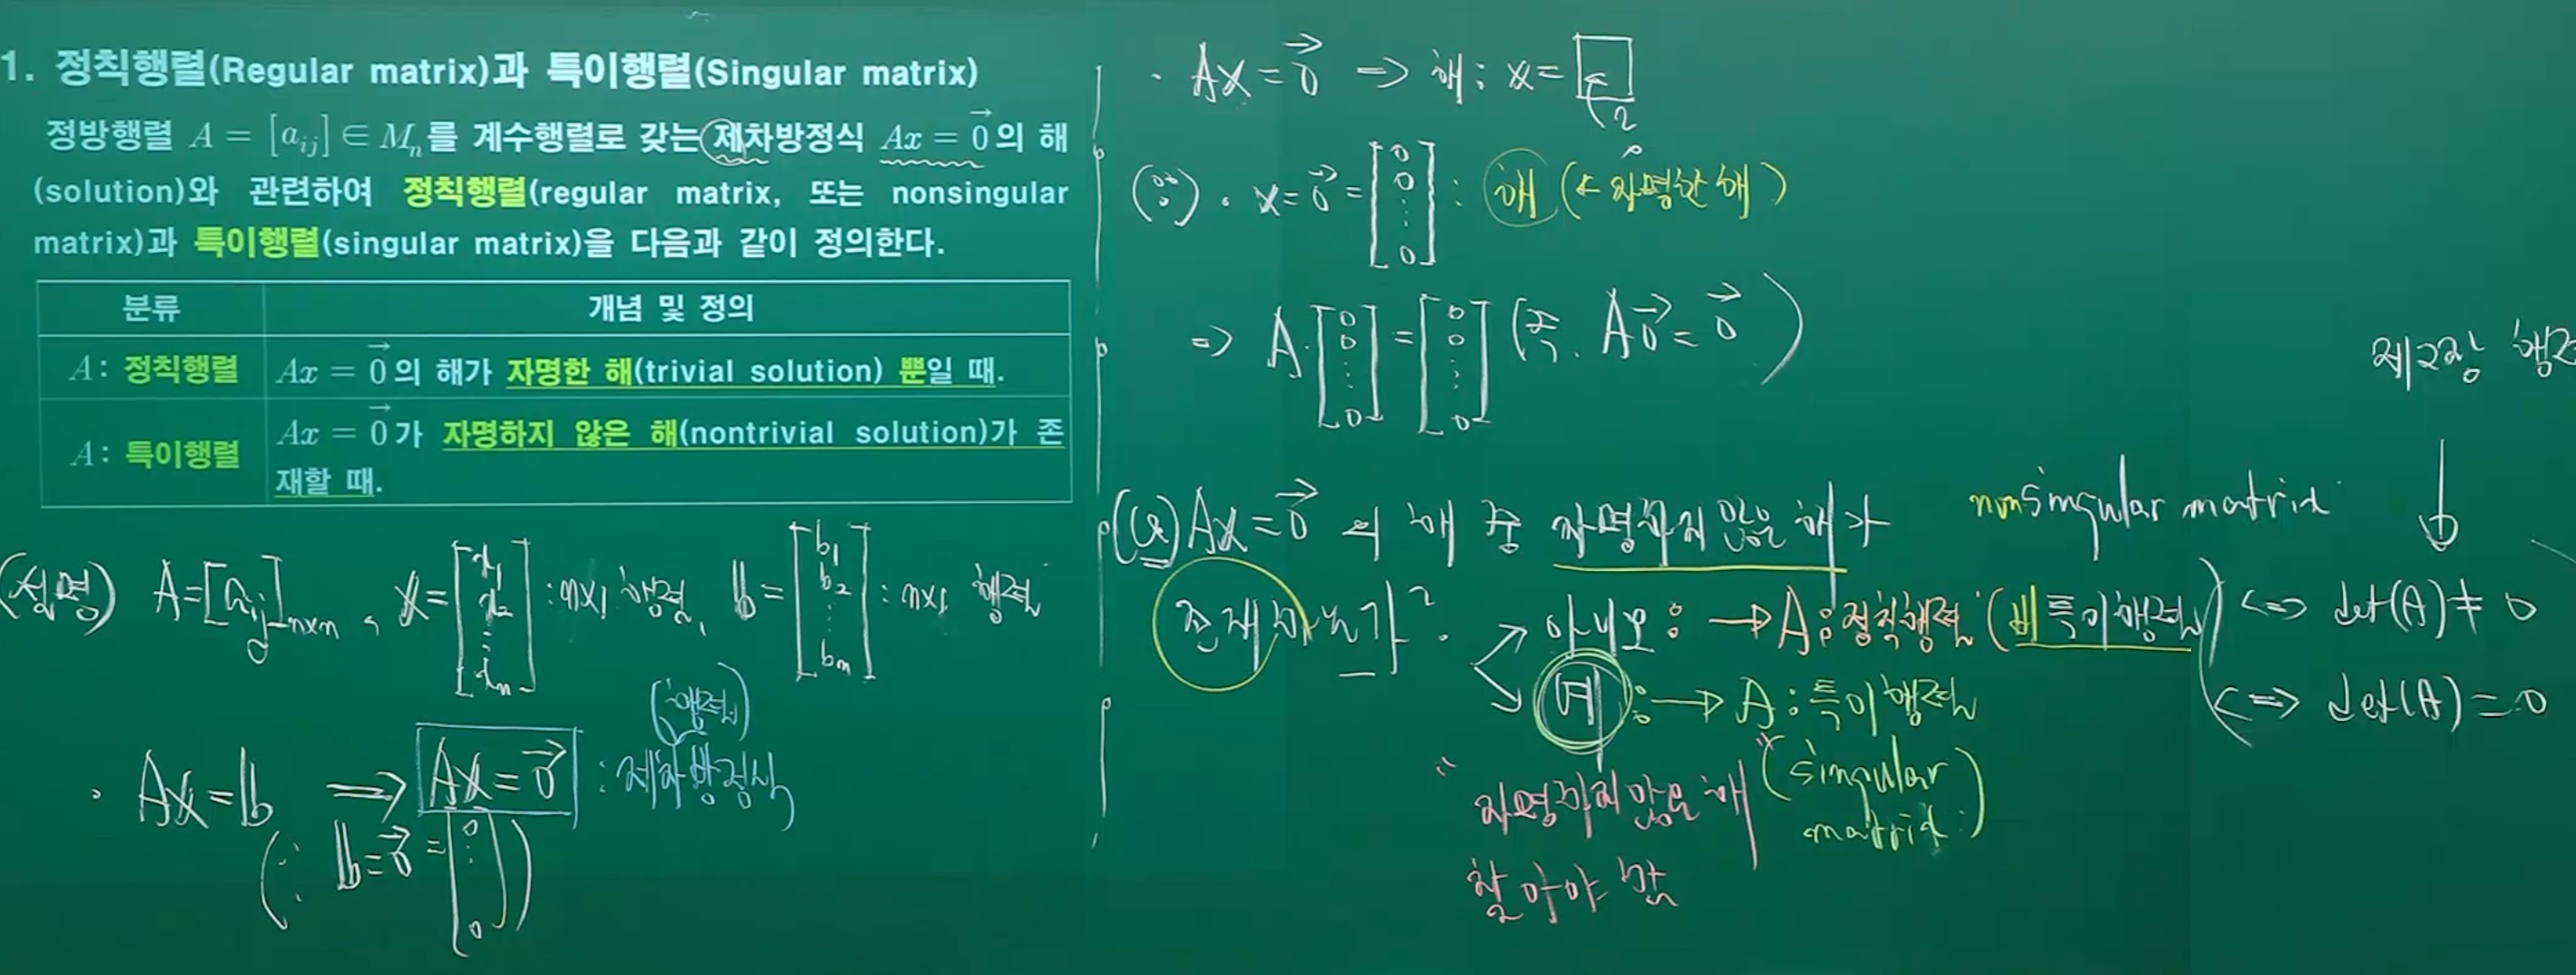 1. 정칙행렬(Regular matrix)과 특이행렬(Singular matrix)
정방행렬 A = [a_ij] ∈ M_n를 계수행렬로 갖는 제차방정식 Ax = 0⃗의 해
(solution)와 관련하여 정칙행렬(regular matrix, 또는 nonsingular
matrix)과 특이행렬(singular matrix)을 다음과 같이 정의한다.
분류 개념 및 정의
A: 정칙행렬 Ax = 0⃗의 해가 자명한 해(trivial solution) 뿐일 때.
A: 특이행렬 Ax = 0⃗가 자명하지 않은 해(nontrivial solution)가 존
재할 때.
(설명) A=[a_ij]_n×n, x=[x_1 x_2 ⋮ x_n] : n×1 행렬, b=[b_1 b_2 ⋮ b_n] : n×1 행렬
(행렬)
· Ax=b ⇒ Ax=0⃗ : 제차방정식
(∵ b=0⃗=[0 ⋮ 0])
· Ax=0⃗ ⇒ 해: x=
(∵) · x=0⃗=[0 0 ⋮ 0] : 해 (← 자명한 해)
⇒ A·[0 0 ⋮ 0]=[0 0 ⋮ 0] (즉, A0⃗=0⃗)
(Q) Ax=0⃗의 해 중 자명하지 않은 해가
존재하는가?
nonsingular matrix
아니오: → A: 정칙행렬 (비특이행렬) ⇔ det(A)≠0
예: → A: 특이행렬 ⇔ det(A)=0
(singular
matrix)
"자명하지 않은 해"
찾아야 함